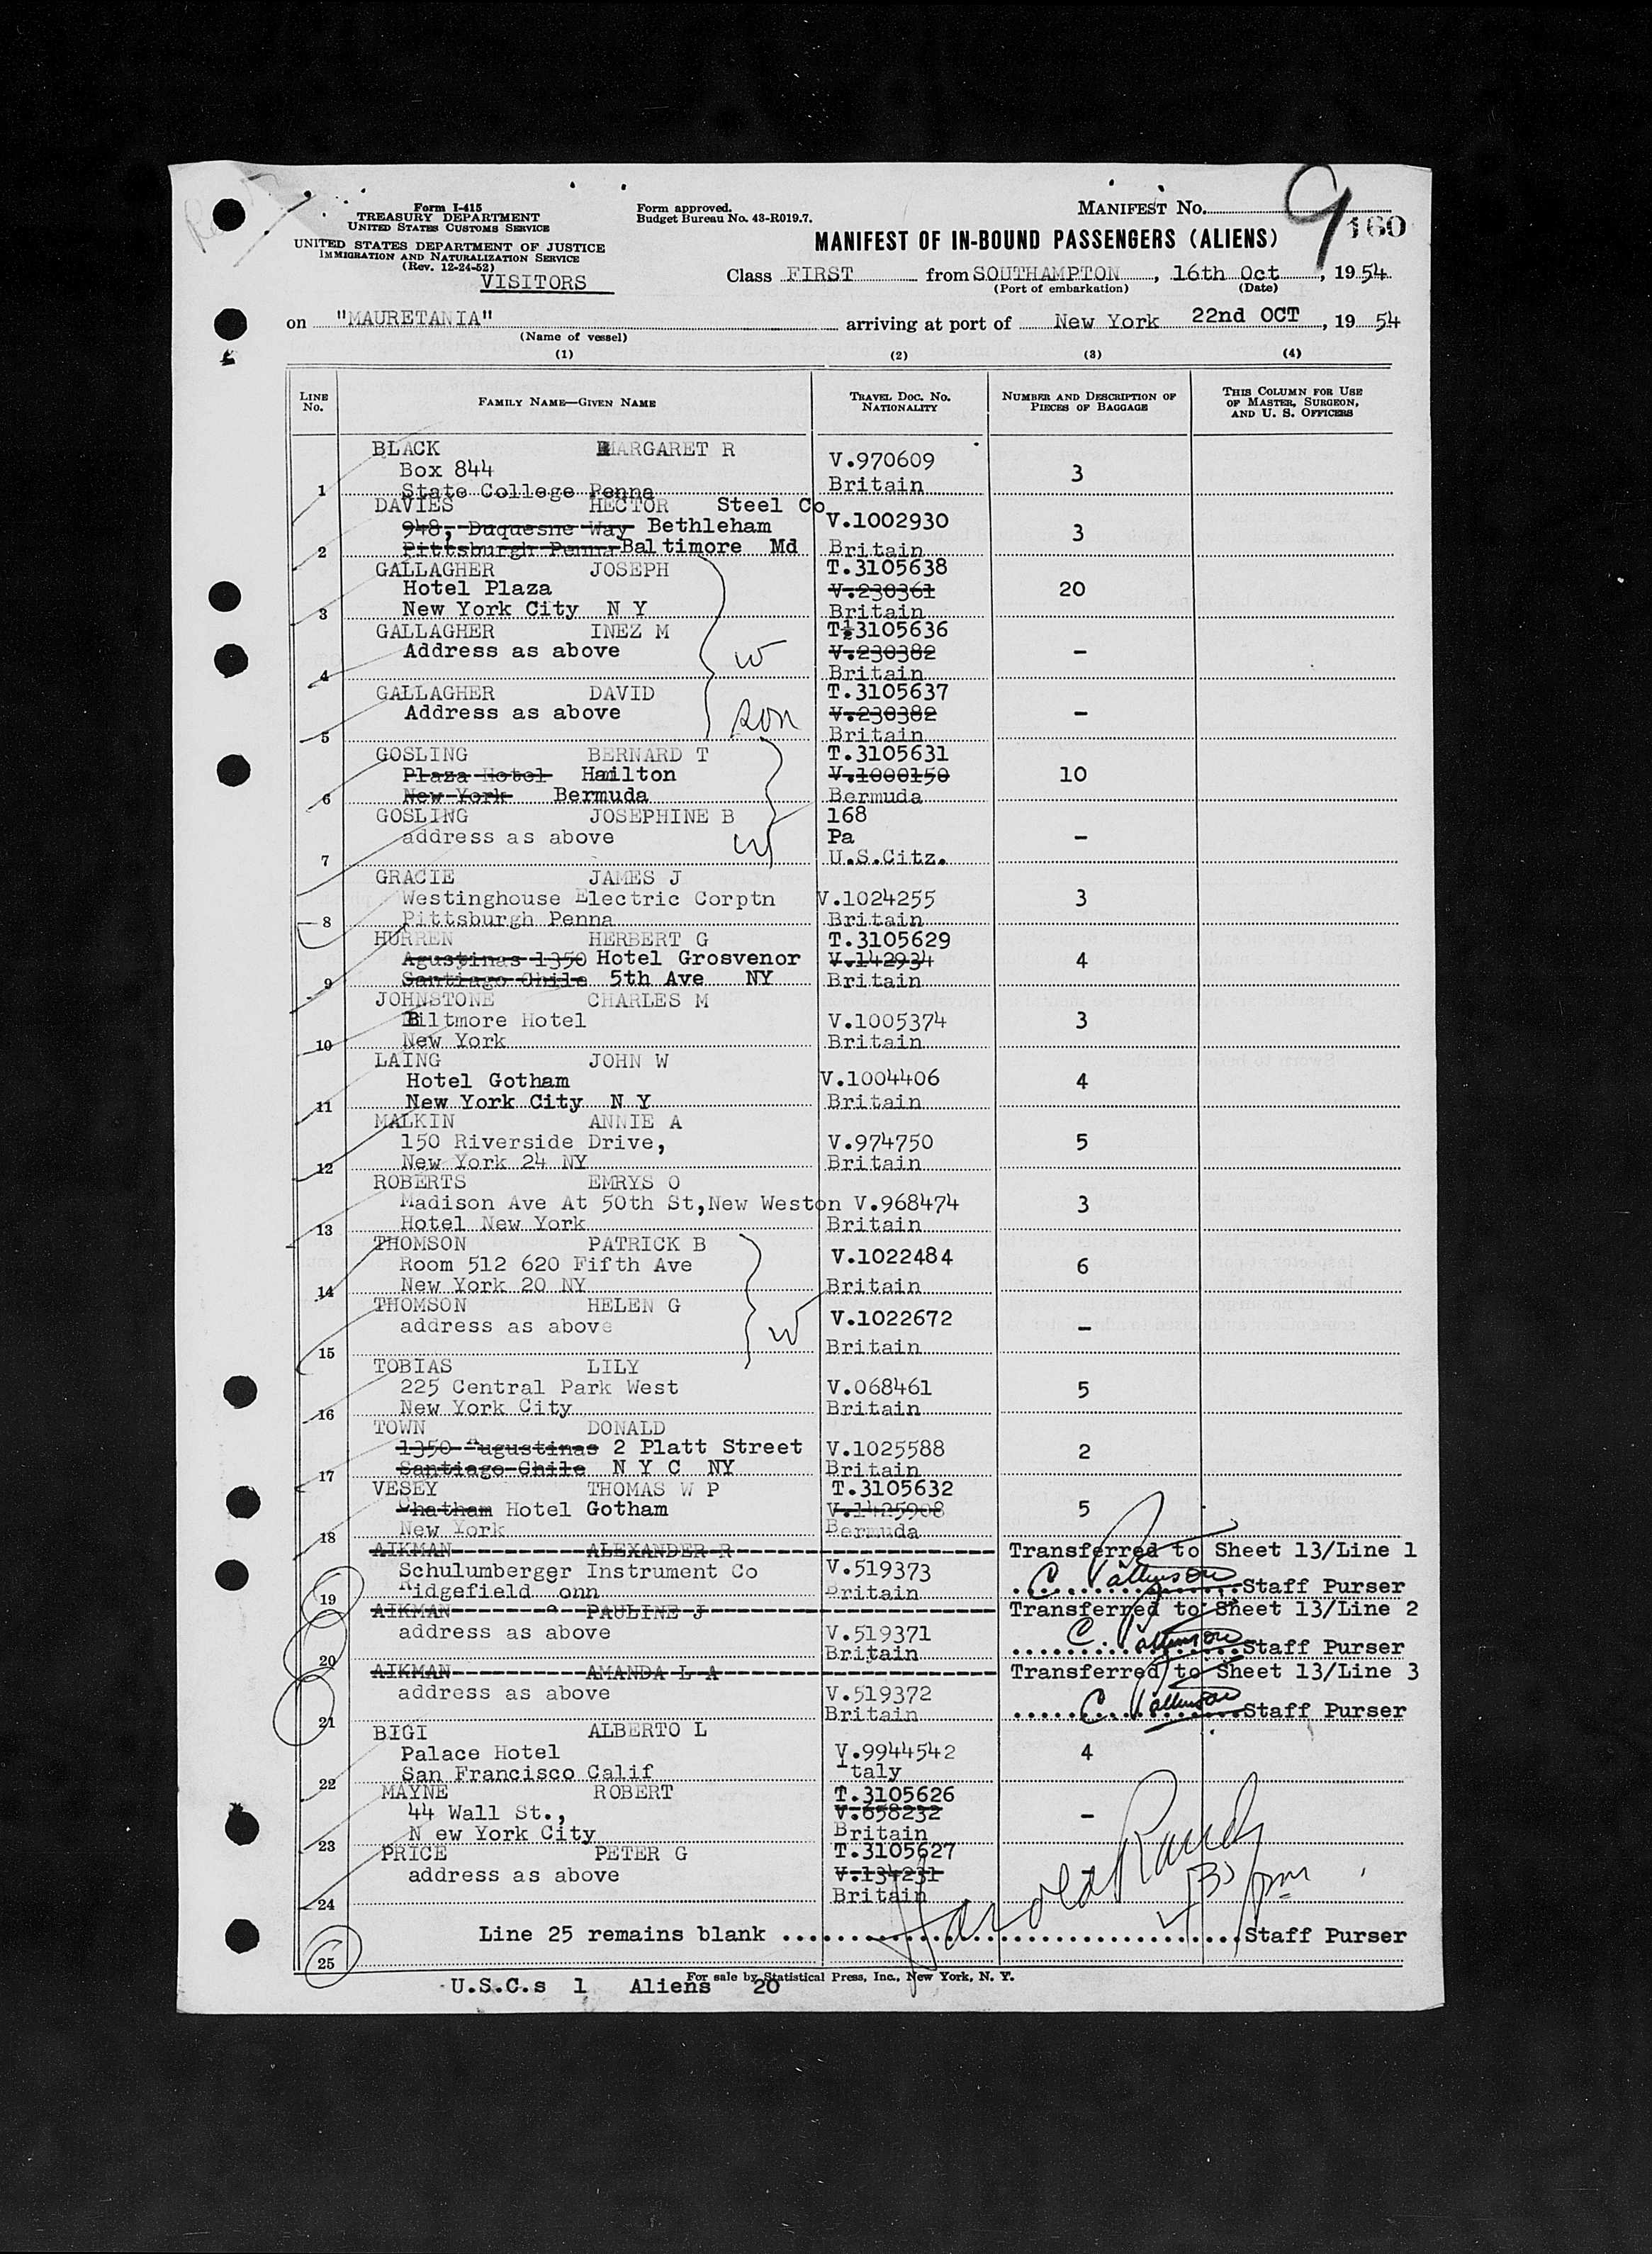 Form I-415
TREASURY DEPARTMENT
UNITED STATES CUSTOMS SERVICE
UNITED STATES DEPARTMENT OF JUSTICE
IMMIGRATION AND NATURALIZATION SERVICE
(Rev. 12-24-52)
VISITORS
Form approved.
Budget Bureau No. 43-R019.7.
MANIFEST No. 9
160
MANIFEST OF IN-BOUND PASSENGERS (ALIENS)
Class FIRST from SOUTHAMPTON, 16th Oct, 1954
(Port of embarkation) (Date)
on "MAURETANIA" arriving at port of New York 22nd OCT, 19 54
(Name of vessel)
(1) (2) (3) (4)
LINE No. FAMILY NAME—GIVEN NAME TRAVEL DOC. No. NATIONALITY NUMBER AND DESCRIPTION OF PIECES OF BAGGAGE THIS COLUMN FOR USE OF MASTER, SURGEON, AND U. S. OFFICERS
BLACK MARGARET R
Box 844 V.970609 3
1 State College Penna Britain
DAVIES HECTOR Steel Co
948, Duquesne Way Bethleham V.1002930 3
2 Pittsburgh Penna Baltimore Md Britain
GALLAGHER JOSEPH T.3105638
Hotel Plaza V.230361 20
3 New York City N Y Britain
GALLAGHER INEZ M T.3105636
Address as above w V.230382 -
4 Britain
GALLAGHER DAVID T.3105637
Address as above son V.230382 -
5 Britain
GOSLING BERNARD T T.3105631
Plaza Hotel Hamilton V.1000150 10
6 New York Bermuda Bermuda
GOSLING JOSEPHINE B 168
address as above w Pa -
7 U.S.Citz.
GRACIE JAMES J
Westinghouse Electric Corptn V.1024255 3
8 Pittsburgh Penna Britain
HURREN HERBERT G T.3105629
Agustinas 1350 Hotel Grosvenor V.142934 4
9 Santiago Chile 5th Ave NY Britain
JOHNSTONE CHARLES M
Biltmore Hotel V.1005374 3
10 New York Britain
LAING JOHN W
Hotel Gotham V.1004406 4
11 New York City N Y Britain
MALKIN ANNIE A
150 Riverside Drive, V.974750 5
12 New York 24 NY Britain
ROBERTS EMRYS O
Madison Ave At 50th St,New Weston V.968474 3
13 Hotel New York Britain
THOMSON PATRICK B
Room 512 620 Fifth Ave V.1022484 6
14 New York 20 NY Britain
THOMSON HELEN G
address as above w V.1022672 -
15 Britain
TOBIAS LILY
225 Central Park West V.068461 5
16 New York City Britain
TOWN DONALD
1350 Augustinas 2 Platt Street V.1025588 2
17 Santiago Chile N Y C NY Britain
VESEY THOMAS W P T.3105632
Chatham Hotel Gotham V.1425908 5
18 New York Bermuda
AIKMAN ALEXANDER R Transferred to Sheet 13/Line 1
Schulumberger Instrument Co V.519373
19 Ridgefield onn Britain Staff Purser
AIKMAN PAULINE J Transferred to Sheet 13/Line 2
address as above V.519371
20 Britain Staff Purser
AIKMAN AMANDA L A Transferred to Sheet 13/Line 3
address as above V.519372
21 Britain Staff Purser
BIGI ALBERTO L
Palace Hotel V.9944542 4
22 San Francisco Calif Italy
MAYNE ROBERT T.3105626
44 Wall St., V.658232 -
23 N ew York City Britain
PRICE PETER G T.3105627
address as above V.134231 -
24 Britain
Line 25 remains blank Staff Purser
25
For sale by Statistical Press, Inc., New York, N. Y.
U.S.C.s 1 Aliens 20